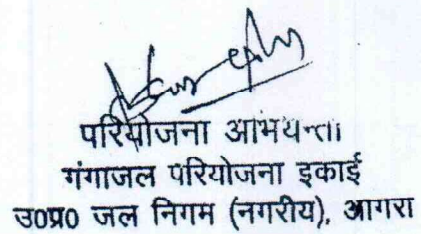 परियोजना अभियन्ता
गंगाजल परियोजना इकाई
उ०प्र० जल निगम (नगरीय), आगरा